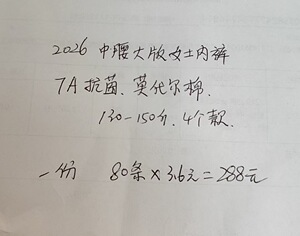 2026 中腰大版女士内裤
7A 抗菌. 莫代尔棉.
130-150斤. 4个款.
一份 80条×3.6元=288元